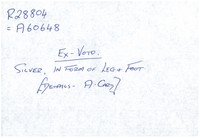 R28804
= A60648
Ex-Voto.
Silver. in form of Leg & Foot.
[Details - A-Card]